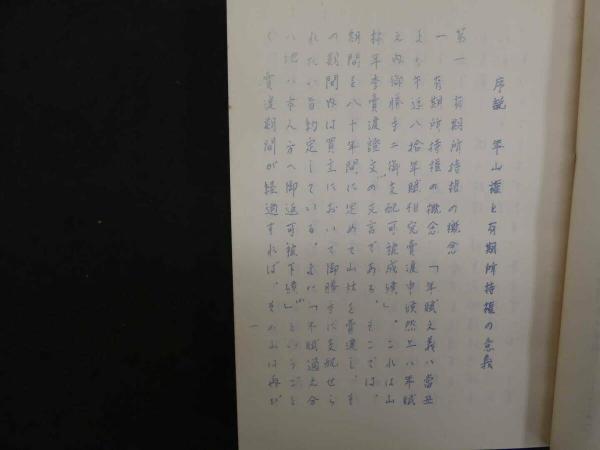 序説 年山権と有期所持権の意義
第一 有期所持権の概念
一 有期所持権の概念 「年賦之義ハ当丑
より午迄八拾年賦相究賣渡申候然上ハ年賦
之内御勝手ニ御支配可被成候」これは山
林年季賣渡證文の文言である。そこでは、
期間を八十年間に定めて山林を賣渡し、そ
の期間内は買主において御勝手に支配せら
れたい旨約定している。更に「年賦過之分
ハ地ハ本人方へ御返可被下候」というごと
く、賣渡期間が経過すれば、その山は再び
一